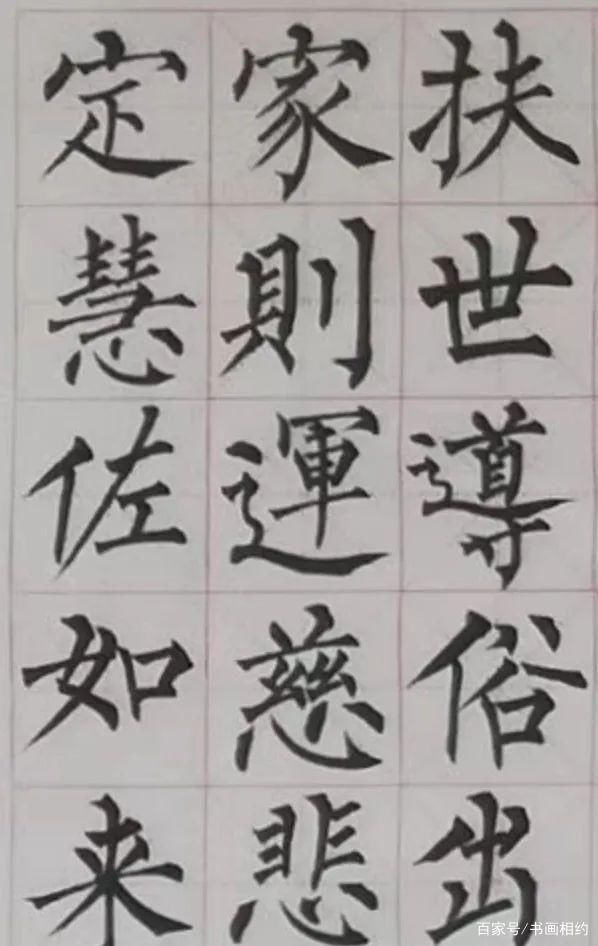 扶世導俗出
家則運慈悲
定慧佐如来
百家号/书画相约